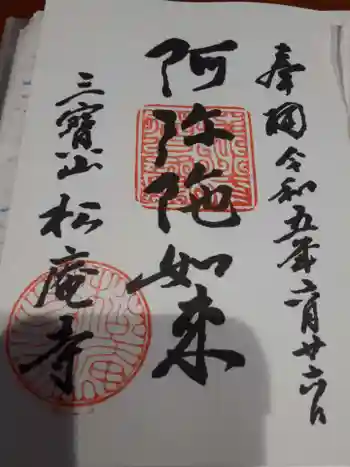 奉閲令和五年六月廿六日
阿弥陀如来
三寶山松庵寺